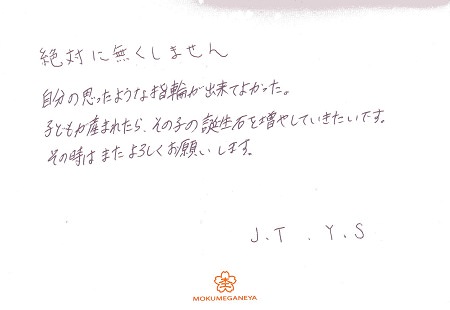 絶対に無くしません
自分の思ったような指輪が出来てよかった。
子どもが産まれたら、その子の誕生石を増やしていきたいです。
その時はまたよろしくお願いします。
J.T . Y.S
MOKUMEGANEYA